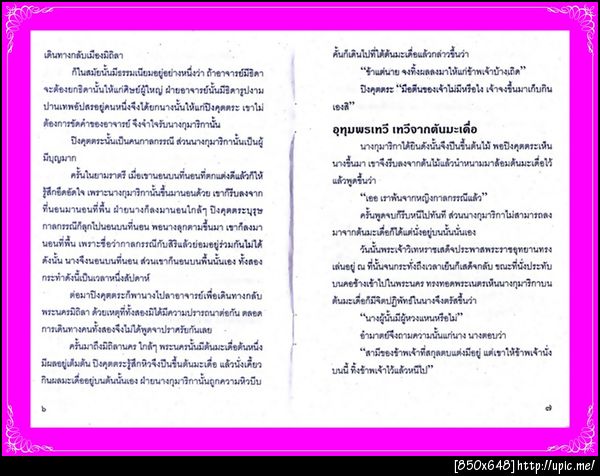 เดินทางกลับเมืองมิถิลา
ก็ในสมัยนั้นมีธรรมเนียมอยู่อย่างหนึ่งว่า ถ้าอาจารย์มีธิดา
จะต้องยกธิดานั้นให้แก่ศิษย์ผู้ใหญ่ ฝ่ายอาจารย์นั้นมีธิดารูปงาม
ปานเทพอัปสรอยู่คนหนึ่งจึงได้ยกนางนั้นให้แก่ปิงคุตตระ เขาไม่
ต้องการขัดคำของอาจารย์ จึงจำใจรับนางกุมาริกานั้น
ปิงคุตตระนั้นเป็นคนกาลกรรณี ส่วนนางกุมาริกานั้นเป็นผู้
มีบุญมาก
ครั้นในยามราตรี เมื่อเขานอนบนที่นอนที่ตกแต่งดีแล้วก็ให้
รู้สึกอึดอัดใจ เพราะนางกุมาริกานั้นขึ้นมานอนด้วย เขาก็รีบลงจาก
ที่นอนมานอนที่พื้น ฝ่ายนางก็ลงมานอนใกล้ๆ ปิงคุตตระบุรุษ
กาลกรรณีก็ลุกไปนอนบนที่นอน พอนางลุกตามขึ้นมา เขาก็ลงมา
นอนที่พื้น เพราะชื่อว่ากาลกรรณีกับสิริแล้วย่อมอยู่ร่วมกันไม่ได้
ดังนั้น นางจึงนอนบนที่นอน ส่วนเขาก็นอนบนพื้นนั้นเอง ทั้งสอง
กระทำดังนี้เป็นเวลาหนึ่งสัปดาห์
ต่อมาปิงคุตตระก็พานางไปลาอาจารย์เพื่อเดินทางกลับ
พระนครมิถิลา ด้วยเหตุที่ทั้งสองมิได้มีความปรารถนาต่อกัน ตลอด
การเดินทางคนทั้งสองจึงไม่ได้พูดจาปราศรัยกันเลย
ครั้นมาถึงมิถิลานคร ใกล้ๆ พระนครนั้นมีต้นมะเดื่อต้นหนึ่ง
มีผลอยู่เต็มต้น ปิงคุตตระรู้สึกหิวจึงปีนขึ้นต้นมะเดื่อ แล้วนั่งเคี้ยว
กินผลมะเดื่ออยู่บนต้นนั้นเอง ฝ่ายนางกุมาริกานั้นถูกความหิวบีบ
๖
คั้นก็เดินไปที่ใต้ต้นมะเดื่อแล้วกล่าวขึ้นว่า
“ข้าแต่นาย จงทิ้งผลลงมาให้แก่ข้าพเจ้าบ้างเถิด”
ปิงคุตตระ “มือตีนของเจ้าไม่มีหรือไง เจ้าจงขึ้นมาเก็บกิน
เองสิ”
อุทุมพรเทวี เทวีจากต้นมะเดื่อ
นางกุมาริกาได้ยินดังนั้นจึงปีนขึ้นต้นไม้ พอปิงคุตตระเห็น
นางขึ้นมา เขาจึงรีบลงจากต้นไม้แล้วนำหนามมาล้อมต้นมะเดื่อไว้
แล้วพูดขึ้นว่า
“เออ เราพ้นจากหญิงกาลกรรณีแล้ว”
ครั้นพูดจบก็รีบหนีไปทันที ส่วนนางกุมาริกาไม่สามารถลง
มาจากต้นมะเดื่อก็ได้แต่นั่งอยู่บนนั้นนั่นเอง
วันนั้นพระเจ้าวิเทหราชเสด็จประพาสพระราชอุทยานทรง
เล่นอยู่ ณ ที่นั้นจนกระทั่งถึงเวลาเย็นก็เสด็จกลับ ขณะที่นั่งประทับ
บนคอช้างเข้าไปในพระนคร ทรงทอดพระเนตรเห็นนางกุมาริกาบน
ต้นมะเดื่อก็มีจิตปฏิพัทธ์ในนางจึงตรัสขึ้นว่า
“นางผู้นั้นมีผู้หวงแหนหรือไม่”
อำมาตย์จึงถามความนั้นแก่นาง นางตอบว่า
“สามีของข้าพเจ้าที่สกุลตบแต่งมีอยู่ แต่เขาให้ข้าพเจ้านั่ง
บนนี้ ทิ้งข้าพเจ้าไว้แล้วหนีไป”
๗
[850x648] http://upic.me/